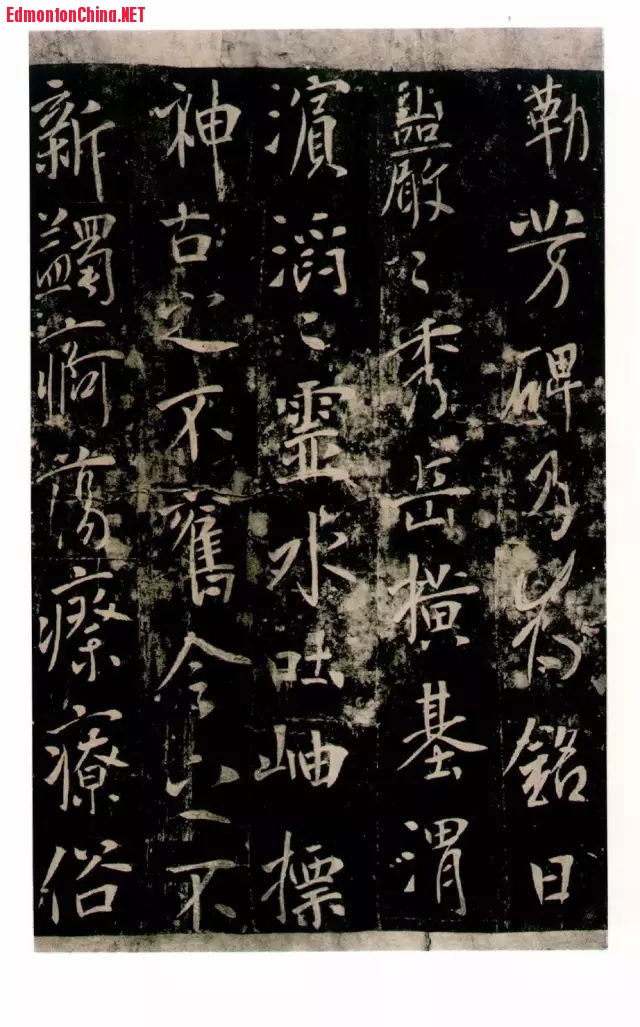 EdmontonChina.NET
勒芳碑乃為銘曰
巖巖秀岳橫基渭
濱滔滔靈水吐岫標
神古之不舊今之不
新蠲痾蕩瘵療俗